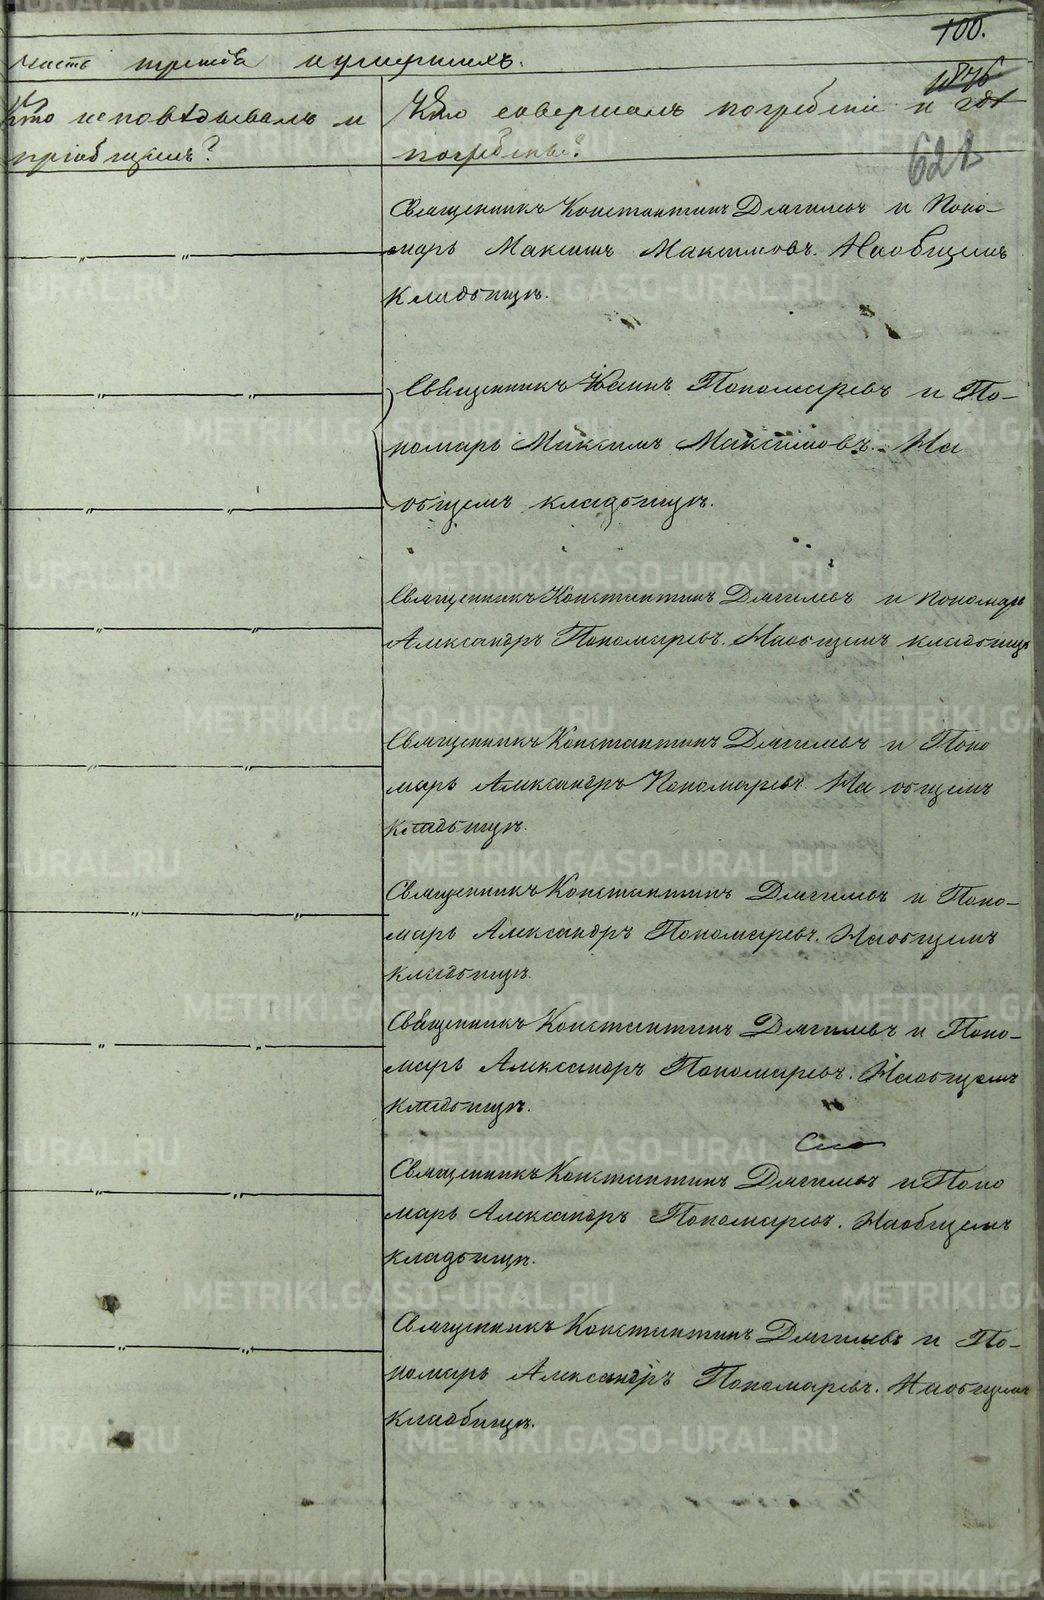 100.
часть третiя о умершихъ.
1876
Кто исповѣдывалъ и прiобщалъ?
Кто совершалъ погребенiе и гдѣ погребены?
621
Священникъ Константинъ Дягилевъ и Поно-
марь Максимъ Максимовъ. На общемъ
кладбищѣ.
Священникъ Iоаннъ Пономаревъ и По-
номарь Максимъ Максимовъ. На
общемъ кладбищѣ.
Священникъ Константинъ Дягилевъ и пономарь
Александръ Пономаревъ. На общемъ кладбищѣ
Священникъ Константинъ Дягилевъ и Поно
марь Александръ Пономаревъ. На общемъ
кладбищѣ.
Священникъ Константинъ Дягилевъ и Поно-
марь Александръ Пономаревъ. На общемъ
кладбищѣ.
Священникъ Константинъ Дягилевъ и Поно-
марь Александръ Пономаревъ. На общемъ
кладбищѣ.
Священникъ Константинъ Дягилевъ и Поно
марь Александръ Пономаревъ. На общемъ
кладбищѣ.
Священникъ Константинъ Дягилевъ и По-
номарь Александръ Пономаревъ. На общемъ
кладбищѣ.
METRIKI.GASO-URAL.RU